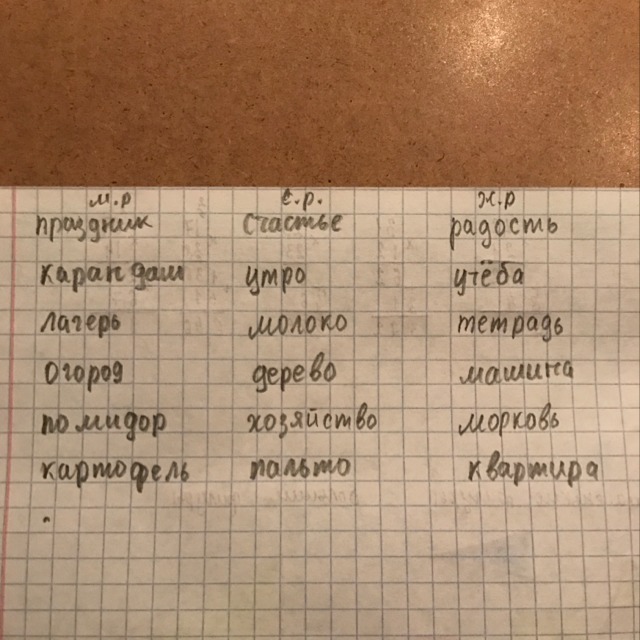 м.р с.р. ж.р
праздник счастье радость
карандаш утро учёба
лагерь молоко тетрадь
огород дерево машина
помидор хозяйство морковь
картофель пальто квартира